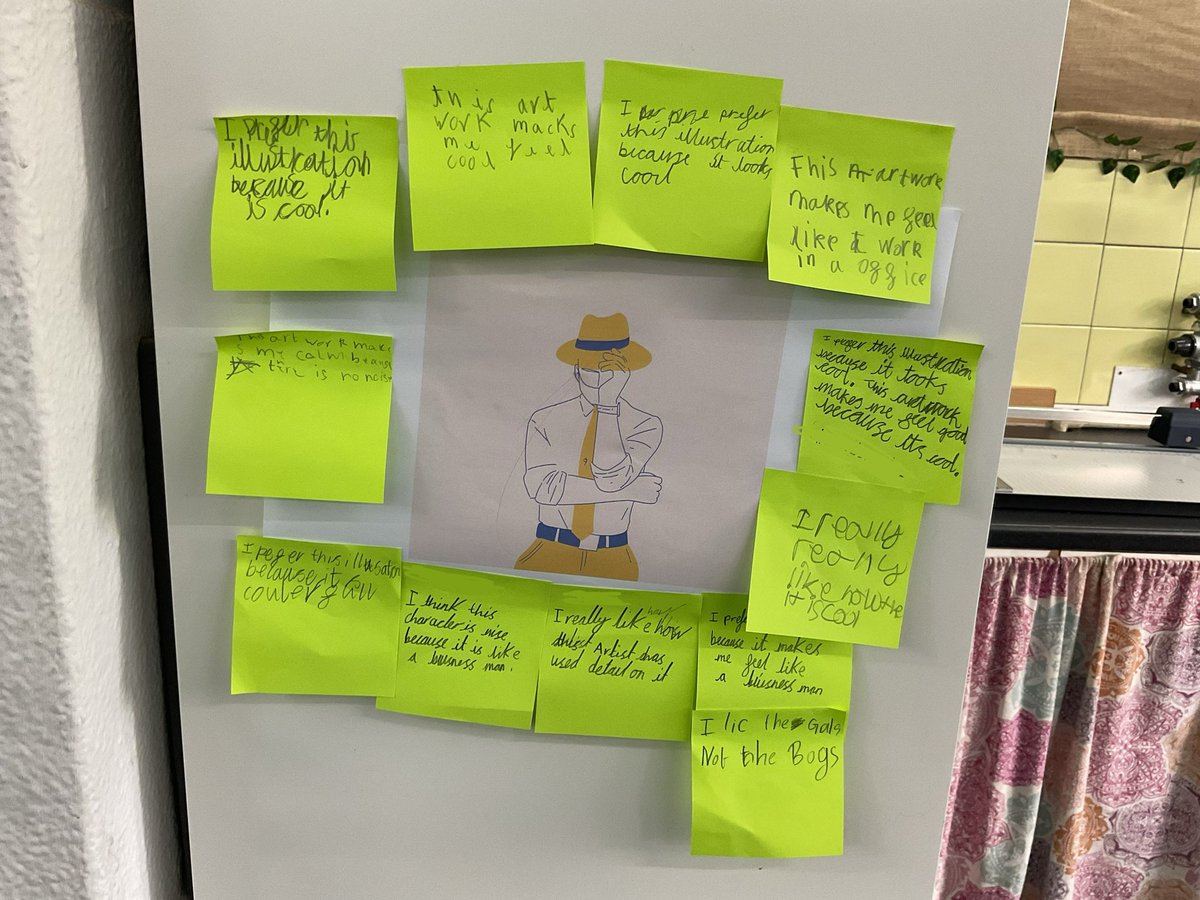 I prefer this
illustration
because it
is cool.
this art
work macks
me feel
cool
I prefer
this illustration
bicause it looks
cool
This artwork
makes me feel
like I work
in a office
this art work make
s my calm
is no
I prefer this illustration
because it looks
cool. This artwork
makes me feel good
because its cool.
I really
really
like how the
it is cool
I peger this illustration
because it
I think this
character is wise
because it is like
a buisness man.
I really like how
this Artist has
used detail on it
I
because it makes
me feel like
a buisness man
I lic the Gals
Not the Bogs